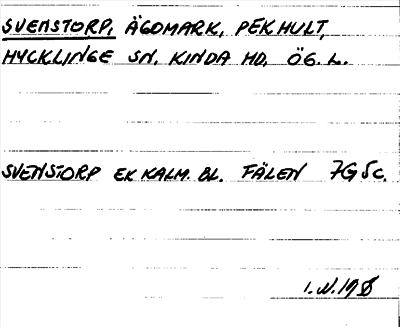 SVENSTORP, ÄGOMARK, PEKHULT,
HYCKLINGE SN. KINDA HD. ÖG. L.
SVENSTORP EK KALM. BL. FÄLEN 7G 5c.